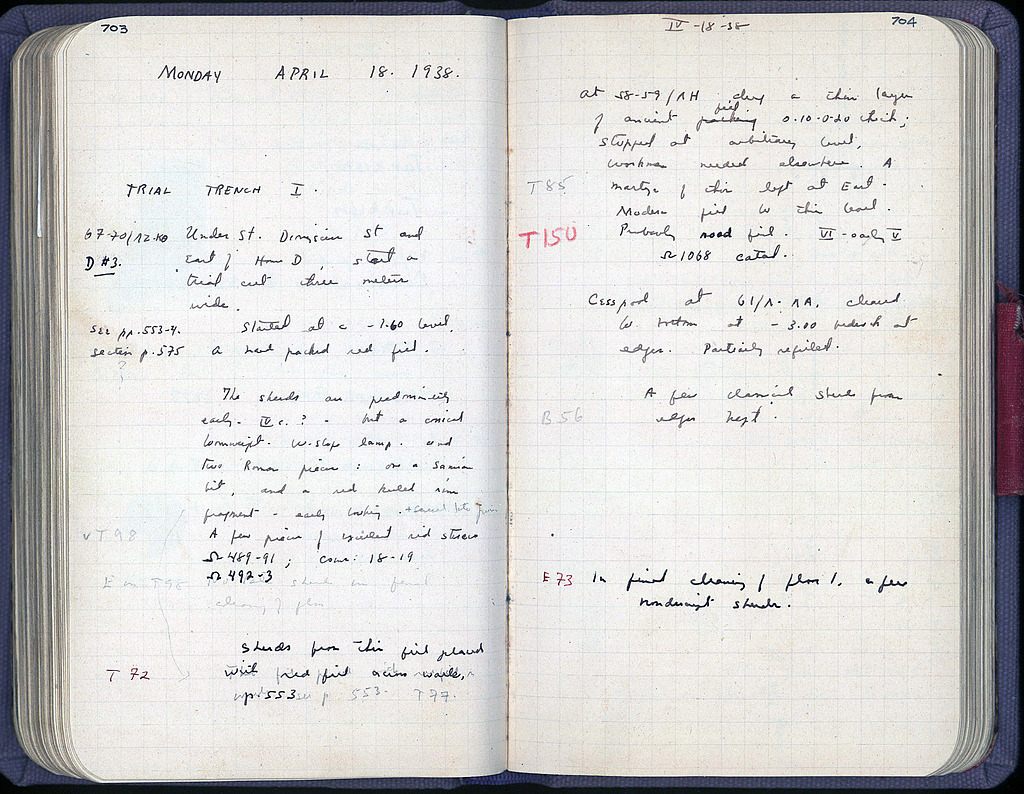 703
MONDAY APRIL 18. 1938.
TRIAL TRENCH I.
67-70/12-10 Under St. Dionysios St and
D #3. East of House D, start a
trial cut three meters
wide.
See pp. 553-4. Started at c -1.60 level,
Section p. 575 a hard packed red fill.
?
The sherds are predominantly
early. IV c.? - but a conical
loomweight. W-slip lamp. and
two Roman pieces: one a Samian
bit, and a red rim
fragment - early looking.
vT98 A few pieces of red stucco
Ω 489-91; coins: 18-19
Ω 492-3
T98 sherds in final
cleaning of
Sherds from this fill placed
T 72 with fill across walls,
p. 553 see p. 553. T77.
704
IV-18-38
At 58-59/ΛH dug a thin layer
fill
of ancient packing 0.10-0.20 thick;
stopped at arbitrary level,
workmen needed elsewhere. A
T85 martyr of this left at East.
Modern fill to this level.
T150 Probably road fill. VI-early V
Ω 1068 catal.
Cesspool at 61/Λ-ΛA, cleared
to bottom at -3.00 bedrock at
edges. Partially refilled.
A few classical sherds from
B56 edges kept.
E 73 In final cleaning of floor 1, a few
nondescript sherds.